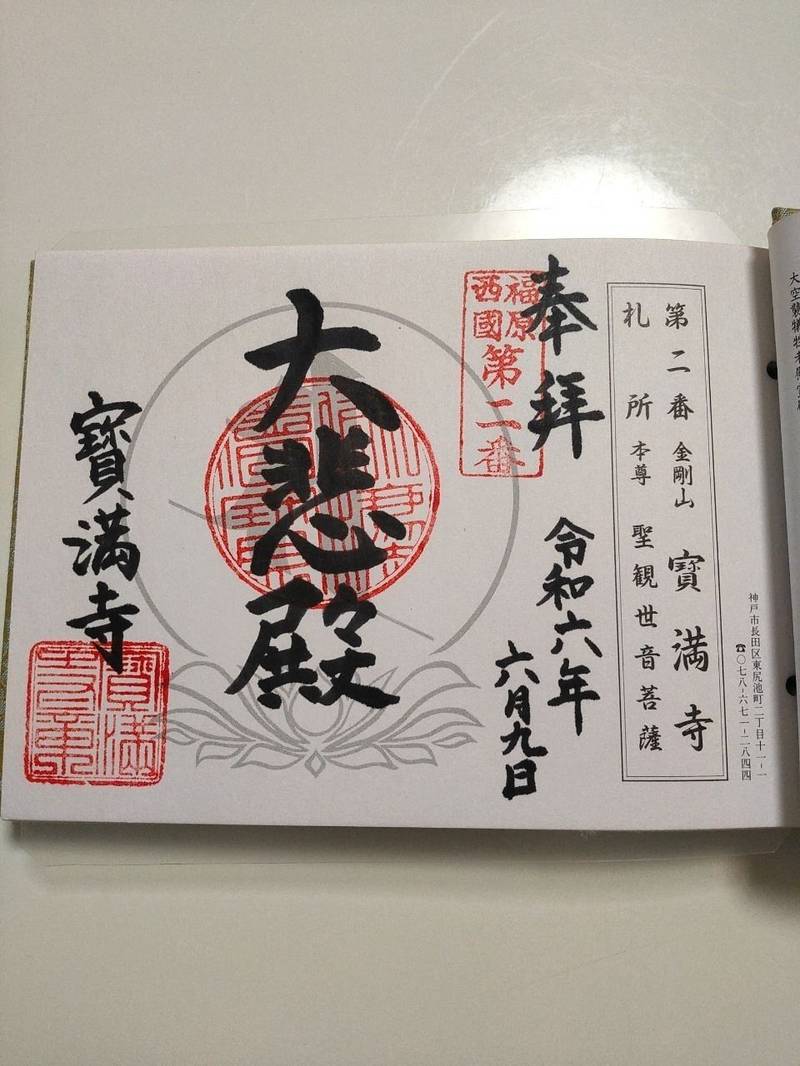 第二番 金剛山 寳満寺
札所 本尊 聖観世音菩薩
神戸市長田区東尻池町二丁目十一-一
☎〇七八-六七一-二八四四
奉拝
令和六年
六月九日
福原
西國
第二番
大悲殿
寳満寺
寳満
寺章